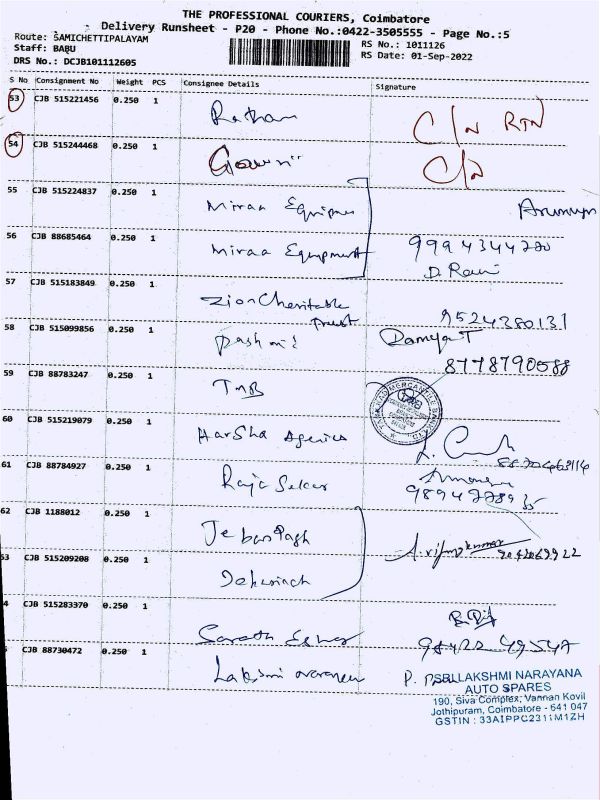 THE PROFESSIONAL COURIERS, Coimbatore
Delivery Runsheet - P20 - Phone No.:0422-3505555 - Page No.:5
Route: SAMICHETTIPALAYAM
Staff: BABU
DRS No.: DCJB101112605
RS No.: 1011126
RS Date: 01-Sep-2022
S No Consignment No Weight PCS Consignee Details Signature
53 CJB 515221456 0.250 1 C/N RTN
54 CJB 515244468 0.250 1 Gowri C/N
55 CJB 515224837 0.250 1 Miraa
56 CJB 88685464 0.250 1 Miraa Equipment 9994344280
D. Ravi
57 CJB 515183849 0.250 1 Zion Charitable
Trust 9524380131
58 CJB 515099856 0.250 1 Ramya T
8778790588
59 CJB 88783247 0.250 1 TMB
TAMILNAD MERCANTILE BANK LTD
60 CJB 515219079 0.250 1 Harsha Agencies
61 CJB 88784927 0.250 1 Raja Sekar
62 CJB 1188012 0.250 1
53 CJB 515209208 0.250 1
4 CJB 515283370 0.250 1 Sarath
CJB 88730472 0.250 1 Lakshmi P.
SRI LAKSHMI NARAYANA
AUTO SPARES
190, Siva Complex, Vannan Kovil
Jothipuram, Coimbatore - 641 047
GSTIN : 33AIPPC2311M1ZH